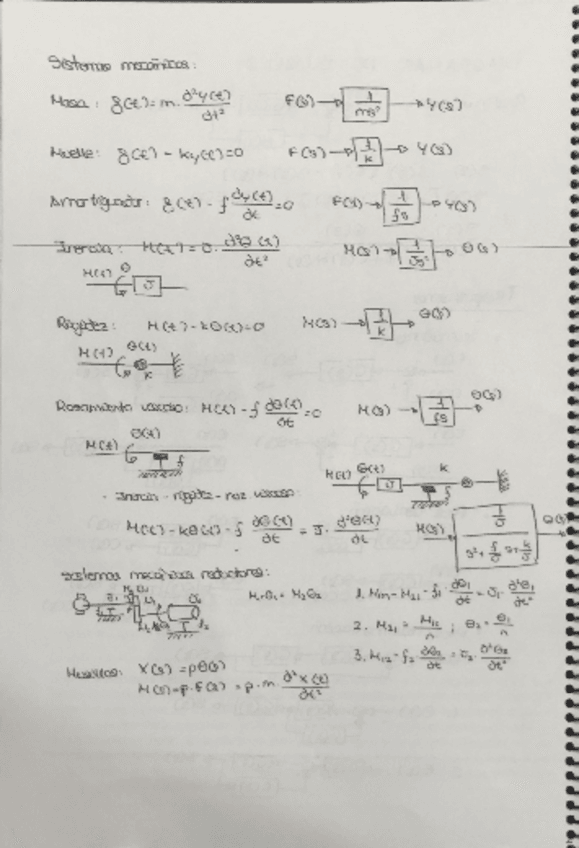 Sistemas mecánicos:
Masa: f(t) = m · d²y(t)/dt² F(s) → 1/ms² → Y(s)
Muelle: f(t) - ky(t) = 0 F(s) → 1/k → Y(s)
Amortiguador: f(t) - f dy(t)/dt = 0 F(s) → 1/fs → Y(s)
Inercia: M(t) = J · d²θ(t)/dt² M(s) → 1/Js² → θ(s)
M(t) θ J
Rigidez: M(t) - kθ(t) = 0 M(s) → 1/k → θ(s)
M(t) θ(t) k
Rozamiento viscoso: M(t) - f dθ(t)/dt = 0 M(s) → 1/fs → θ(s)
M(t) θ(t) f
M(t) θ(t) J k f
· Inercia - rigidez - roz. viscoso
M(t) - kθ(t) - f dθ(t)/dt = J · d²θ(t)/dt² M(s) → (1/J)/(s² + f/J s + k/J) → θ(s)
Sistemas mecánicos reductores:
M₁θ₁ = M₂θ₂ 1. Mm - M₂₁ - f₁ · dθ₁/dt = J₁ · d²θ₁/dt²
2. M₂₁ = M₁₂/n ; θ₂ = θ₁/n
3. M₁₂ - f₂ · dθ₂/dt = J₂ · d²θ₂/dt²
X(s) = pθ(s)
M(s) = p · F(s) = p · m · d²x(t)/dt²